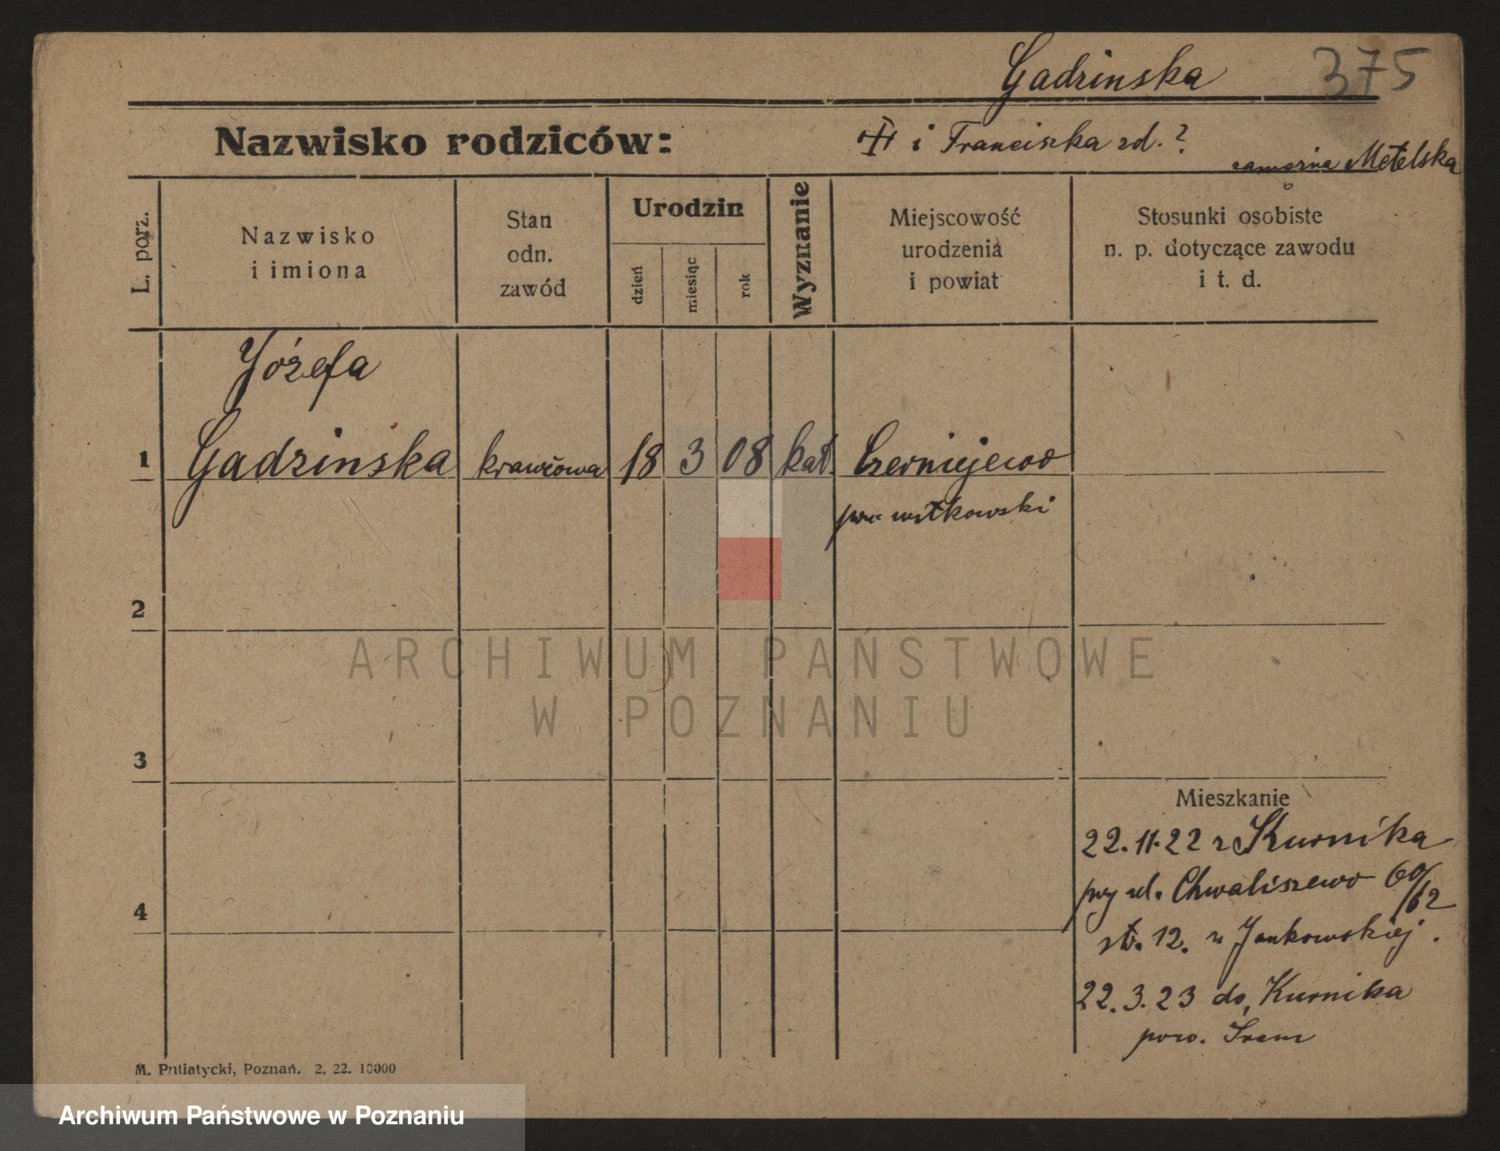 Gadzinska 375
Nazwisko rodziców: i Franciszka zd. ?
zamężna Metelska
L. porz.
Nazwisko
i imiona
Stan
odn.
zawód
Urodzin
dzień
miesiąc
rok
Wyznanie
Miejscowość
urodzenia
i powiat
Stosunki osobiste
n. p. dotyczące zawodu
i t. d.
Józefa
1 Gadzinska krawcowa 18 3 08 kat. Czerniejewo
pow witkowski
2
ARCHIWUM PAŃSTWOWE
W POZNANIU
3
Mieszkanie
22.11.22 z Kurnika
przy ul. Chwaliszewo 60/62
st. 12. u Jankowskiej.
4
22.3.23 do Kurnika
pow. Śrem
M. Putiatycki, Poznań. 2. 22. 10000
Archiwum Państwowe w Poznaniu